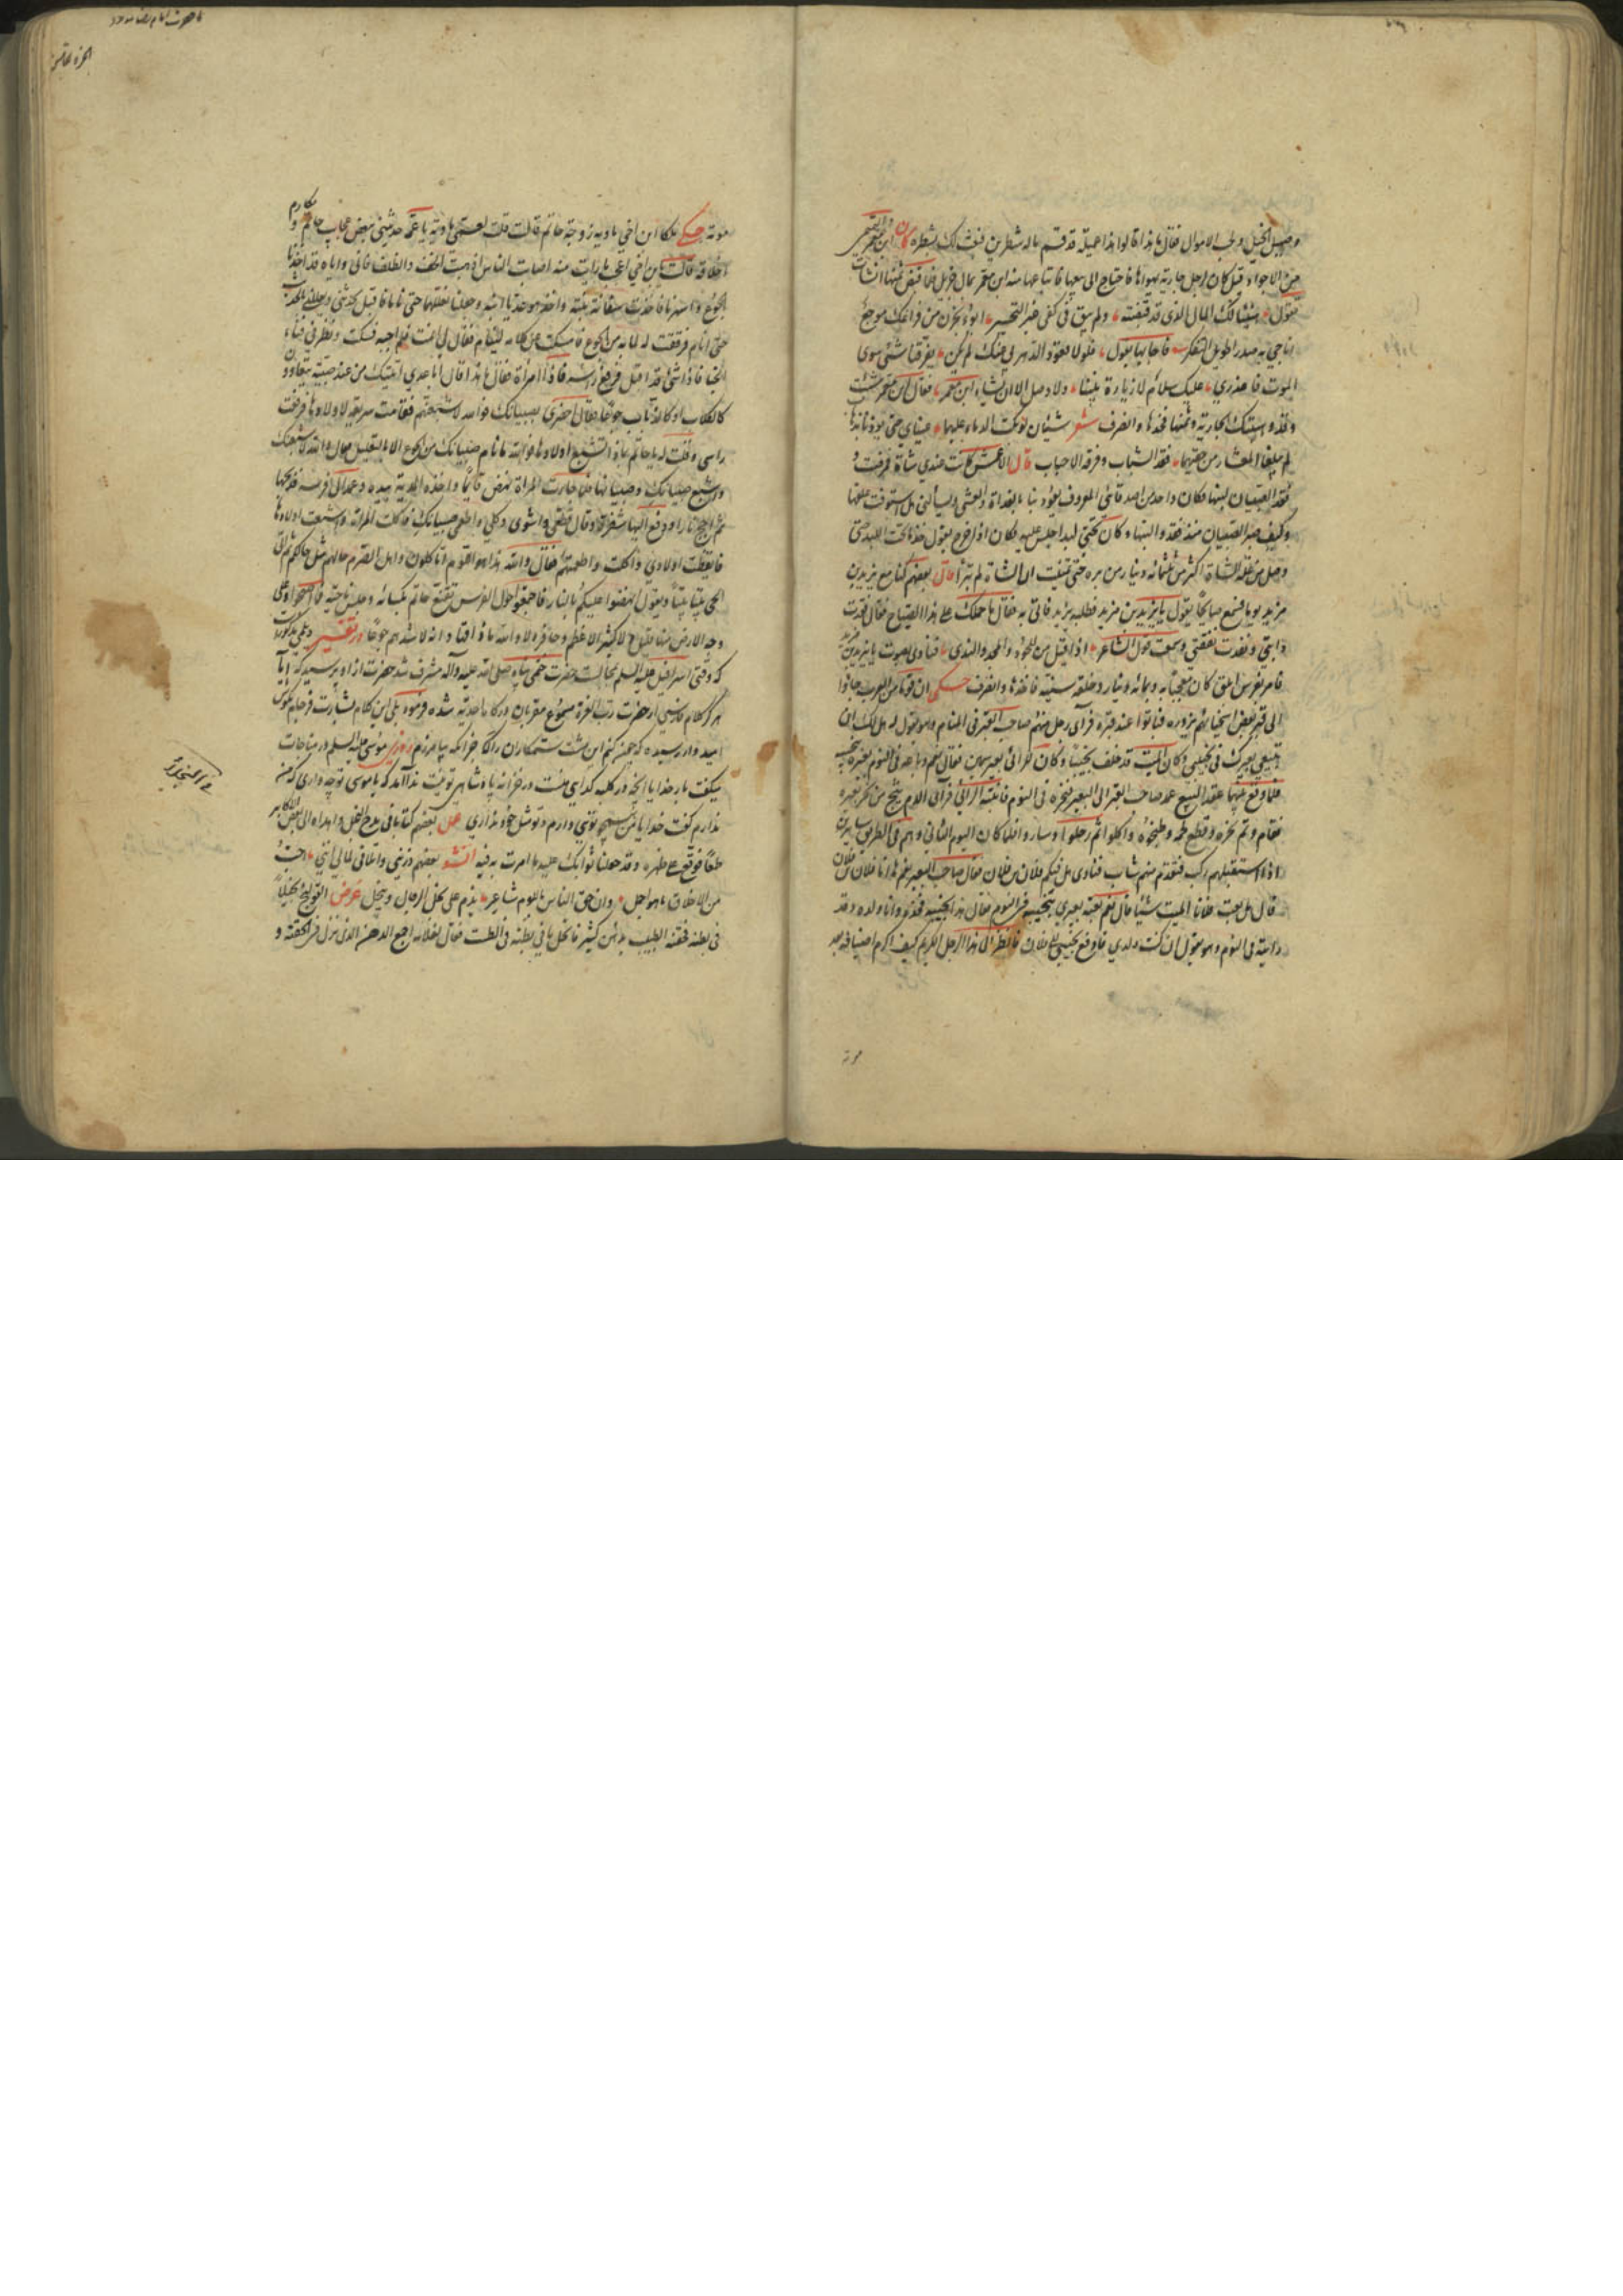 وصهيل الخيل و الاموال فقال ما هذا قالوا هذا قد قسم ماله شطرين فبعث اليك بشطره كان ابن معمر التيمي
من الاجواد قيل كان لرجل جارية يهواها فاحتاج الى بيعها فابتاعها منه ابن معمر بمال جزيل فلما قبض ثمنها انشأت
تقول هنيئا لك المال الذي قد قبضته ولم يبق في كفي غير التحسر ابوء بحزن من فراقك موجع
اناجي به صدرا طويل التفكر فاجابها يقول فلولا قعود الدهر بي عنك لم يكن يفرقنا شيء سوى
الموت فاعذري عليك سلام لا زيارة بيننا ولا وصل الا ان يشاء ابن معمر فقال ابن معمر شئت
وقد وهبتك الجارية وثمنها فخذها وانصرف شعر شيئان لو بكت الدماء عليهما عيناي حتى يؤذنا بذهاب
لم يبلغا المعشار من حقيهما فقد الشباب وفرقة الاحباب قال الاعمش كانت عندي شاة فمرضت و
فقد الصبيان لبنها فكان يعودنا بالغداة والعشي ويسألني هل استوفت علفها
وكيف صبر الصبيان منذ فقدوا لبنها وكان تحتي لبد اجلس عليه فكان اذا خرج يقول خذ ما تحت اللبد حتى
وصل من علة الشاة اكثر من ثلثمائة دينار من بره حتى تمنيت ان الشاة لم تبرأ قال بعضهم كنا مع يزيد بن
مزيد يوما فسمع صايحا يقول يا يزيد بن مزيد فطلبه يزيد فاتي به فقال ما حملك على هذا الصياح فقال فقدت
دابتي ونفدت نفقتي وسمعت قول الشاعر اذا قيل من للجود والمجد والندى فنادى بصوت يا يزيد بن مزيد
فامر بفرس ابلق كان معجبا به وبمائة دينار وخلعة سنية فاخذها وانصرف حكي ان قوما من العرب جاءوا
الى قبر بعض اسخيائهم يزورونه فباتوا عند قبره فرأى رجل منهم صاحب القبر في المنام وهو يقول له هل لك ان
تبيعني بعيرك في نجيبي وكان الميت قد خلف نجيبا وكان للرائي بعير سمين فقال نعم وباعه في النوم بعيره بنجيبه
فلما وقع بينهما عقد البيع عمد صاحب القبر الى البعير فنحره في النوم فانتبه الرائي فرأى الدم يثج من نحر بعيره
فقام وتم نحره وقطع لحمه وطبخوه واكلوا ثم رحلوا وساروا فلما كان اليوم الثاني وهم في الطريق سايرين
اذا استقبلهم ركب فتقدم منهم شاب فنادى هل فيكم فلان بن فلان فقال صاحب البعير نعم ها انا فلان بن فلان
قال هل بعت فلانا الميت شيئا قال نعم بعته بعيري بنجيبه في النوم فقال هذا نجيبه فخذه وانا ولده وقد
رأيته في النوم وهو يقول ان كنت ولدي فادفع نجيبي الى فلان فانظر الى هذا الرجل الكريم كيف اكرم اضيافه بعد
موته
موته حكي ملكان ابن اخي ماوية زوجة حاتم قالت قلت لعمتي ماوية يا عمة حدثيني ببعض عجايب حاتم و مكارم
اخلاقه قالت يا ابن اخي اعجب ما رأيت منه اصابت الناس اذهبت الخف والظلف فاني واياه قد اخذنا
الجوع واسهرنا فاخذت سفانة بنته واخذ هو عديا ابنه وجعلنا نعللهما حتى ناما فاقبل يحدثني ويعللني بالحديث
حتى انام فرققت له لما به من الجوع فامسكت عن كلامه لينام فقال لي انمت فلم اجبه فسكت ونظر في فناء
الخباء فاذا شيء قد اقبل فرفع رأسه فاذا امرأة فقال ما هذا قال اتيتك من عند صبية يتعاوون
كالكلاب او كالذئاب جوعا فقال احضري صبيانك فوالله لاشبعنهم فقامت سريعة لاولادها فرفعت
راسي وقلت له يا حاتم بماذا تشبع اولادها فوالله ما نام صبيانك من الجوع الا بالتعليل فقال والله لاشبعنك
واشبع صبيانك وصبيانها فلما جاءت المرأة نهض قائما واخذ المدية بيده وعمد الى فرسه فذبحها
ثم اجج نارا ودفع اليها شفرة وقال قطعي واشوي وكلي واطعمي صبيانك فاكلت المرأة واشبعت اولادها
فايقظت اولادي واكلت واطعمتهم فقال والله هذا لهو اللؤم تأكلون واهل الصرم حالهم مثل حالكم ثم اتى
الحي بيتا بيتا ويقول انهضوا عليكم بالنار فاجتمعوا حول الفرس وتقنع حاتم بكسائه وجلس ناحية فما اصبحوا وعلى
وجه الارض منها قليل لا كثير الا عظم وحافر ولا والله ما ذاقها وانه لاشدهم جوعا در تفسير ديلمي مذكورست
كه وقتى اسرافيل عليه السلام بمجالست حضرت ختمى پناه صلى الله عليه وآله مشرف شد حضرت از او پرسيد كه آيا
هرگز كلام فارسى از حضرت رب العزة مسموع مقربان درگاه احديت شده فرمود بلى اين كلام بشارت فرجام بگوش
اميدوار رسيده كه چه كنم اين مشت ستمكاران را جز آنكه بيامرزم روزى موسى عليه السلام در مناجات
ميگفت بار خدايا آنچه در كلبه گداى منست در خزانه پادشاهى تو نيست ندا آمد كه يا موسى تو چه دارى كه من
ندارم گفت خدايا من همچو تويى دارم و تو مثل خود ندارى عمل بعضهم كتابا في مدح البخل واهداه الى بعض الاكابر
طمعا فوقع على ظهره وقد جعلنا ثوابك عليه ما امرت به فيه انشد بعضهم ذريني واتلافي لمالي انني احب
من الاخلاق ما هو اجمل وان احق الناس باللوم شاعر يذم على بخل الرجال ويبخل عرض القولنج لبخيل
في بطنه فحقنه الطبيب بدهن كثير فانحل ما في بطنه في الطست فقال لغلامه اجمع الدهن الذي نزل من الحقنة و